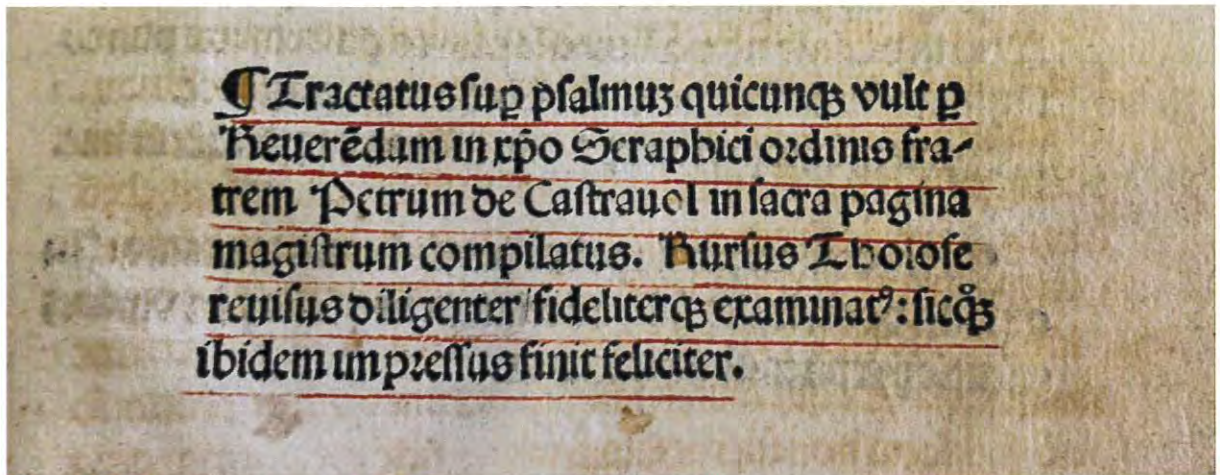 ¶ Tractatus suꝑ psalmuꝫ quicunqꝫ vult ꝑ
Reuerẽdum in xp̃o Seraphici ordinis fra-
trem Petrum de Castrauol in sacra pagina
magistrum compilatus. Rursus Tholose
reuisus diligenter/fideliterqꝫ examinatꝰ: sicqꝫ
ibidem impressus finit feliciter.